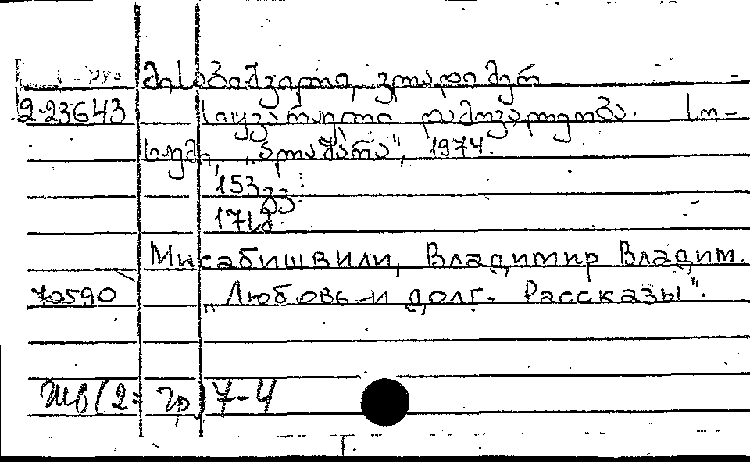 მისაბიშვილი, ვლადიმერ
2-23643 სიყვარული და მოვალეობა. სო-
ხუმი, „ალაშარა", 1974.
153 გვ.
171 გ.
Мисабишвили, Владимир Владим.
70590 „Любовь и долг. Рассказы".
Шв(2=гр)7-4